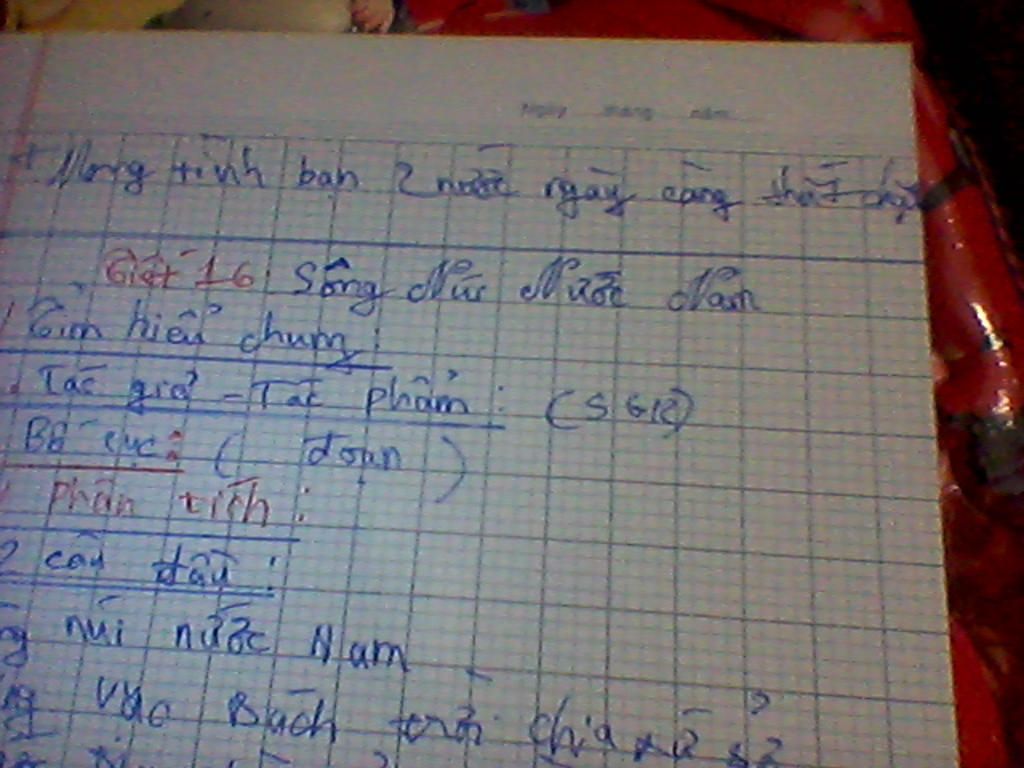 Ngày tháng năm
+ Mong tình bạn 2 nước ngày càng thắt chặt
Tiết 16: Sông Núi Nước Nam
I/ Tìm hiểu chung:
Tác giả - Tác phẩm: (SGK)
Bố cục: ( đoạn )
Phân tích:
2 câu đầu:
núi nước Nam
vào sách trời chia xứ sở